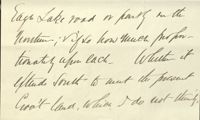 Eagle Lake road or partly on the
Northern; & if so how much propor-
tionately upon each. Whether it
extends South to meet the present
Gov't land, which I do not think,